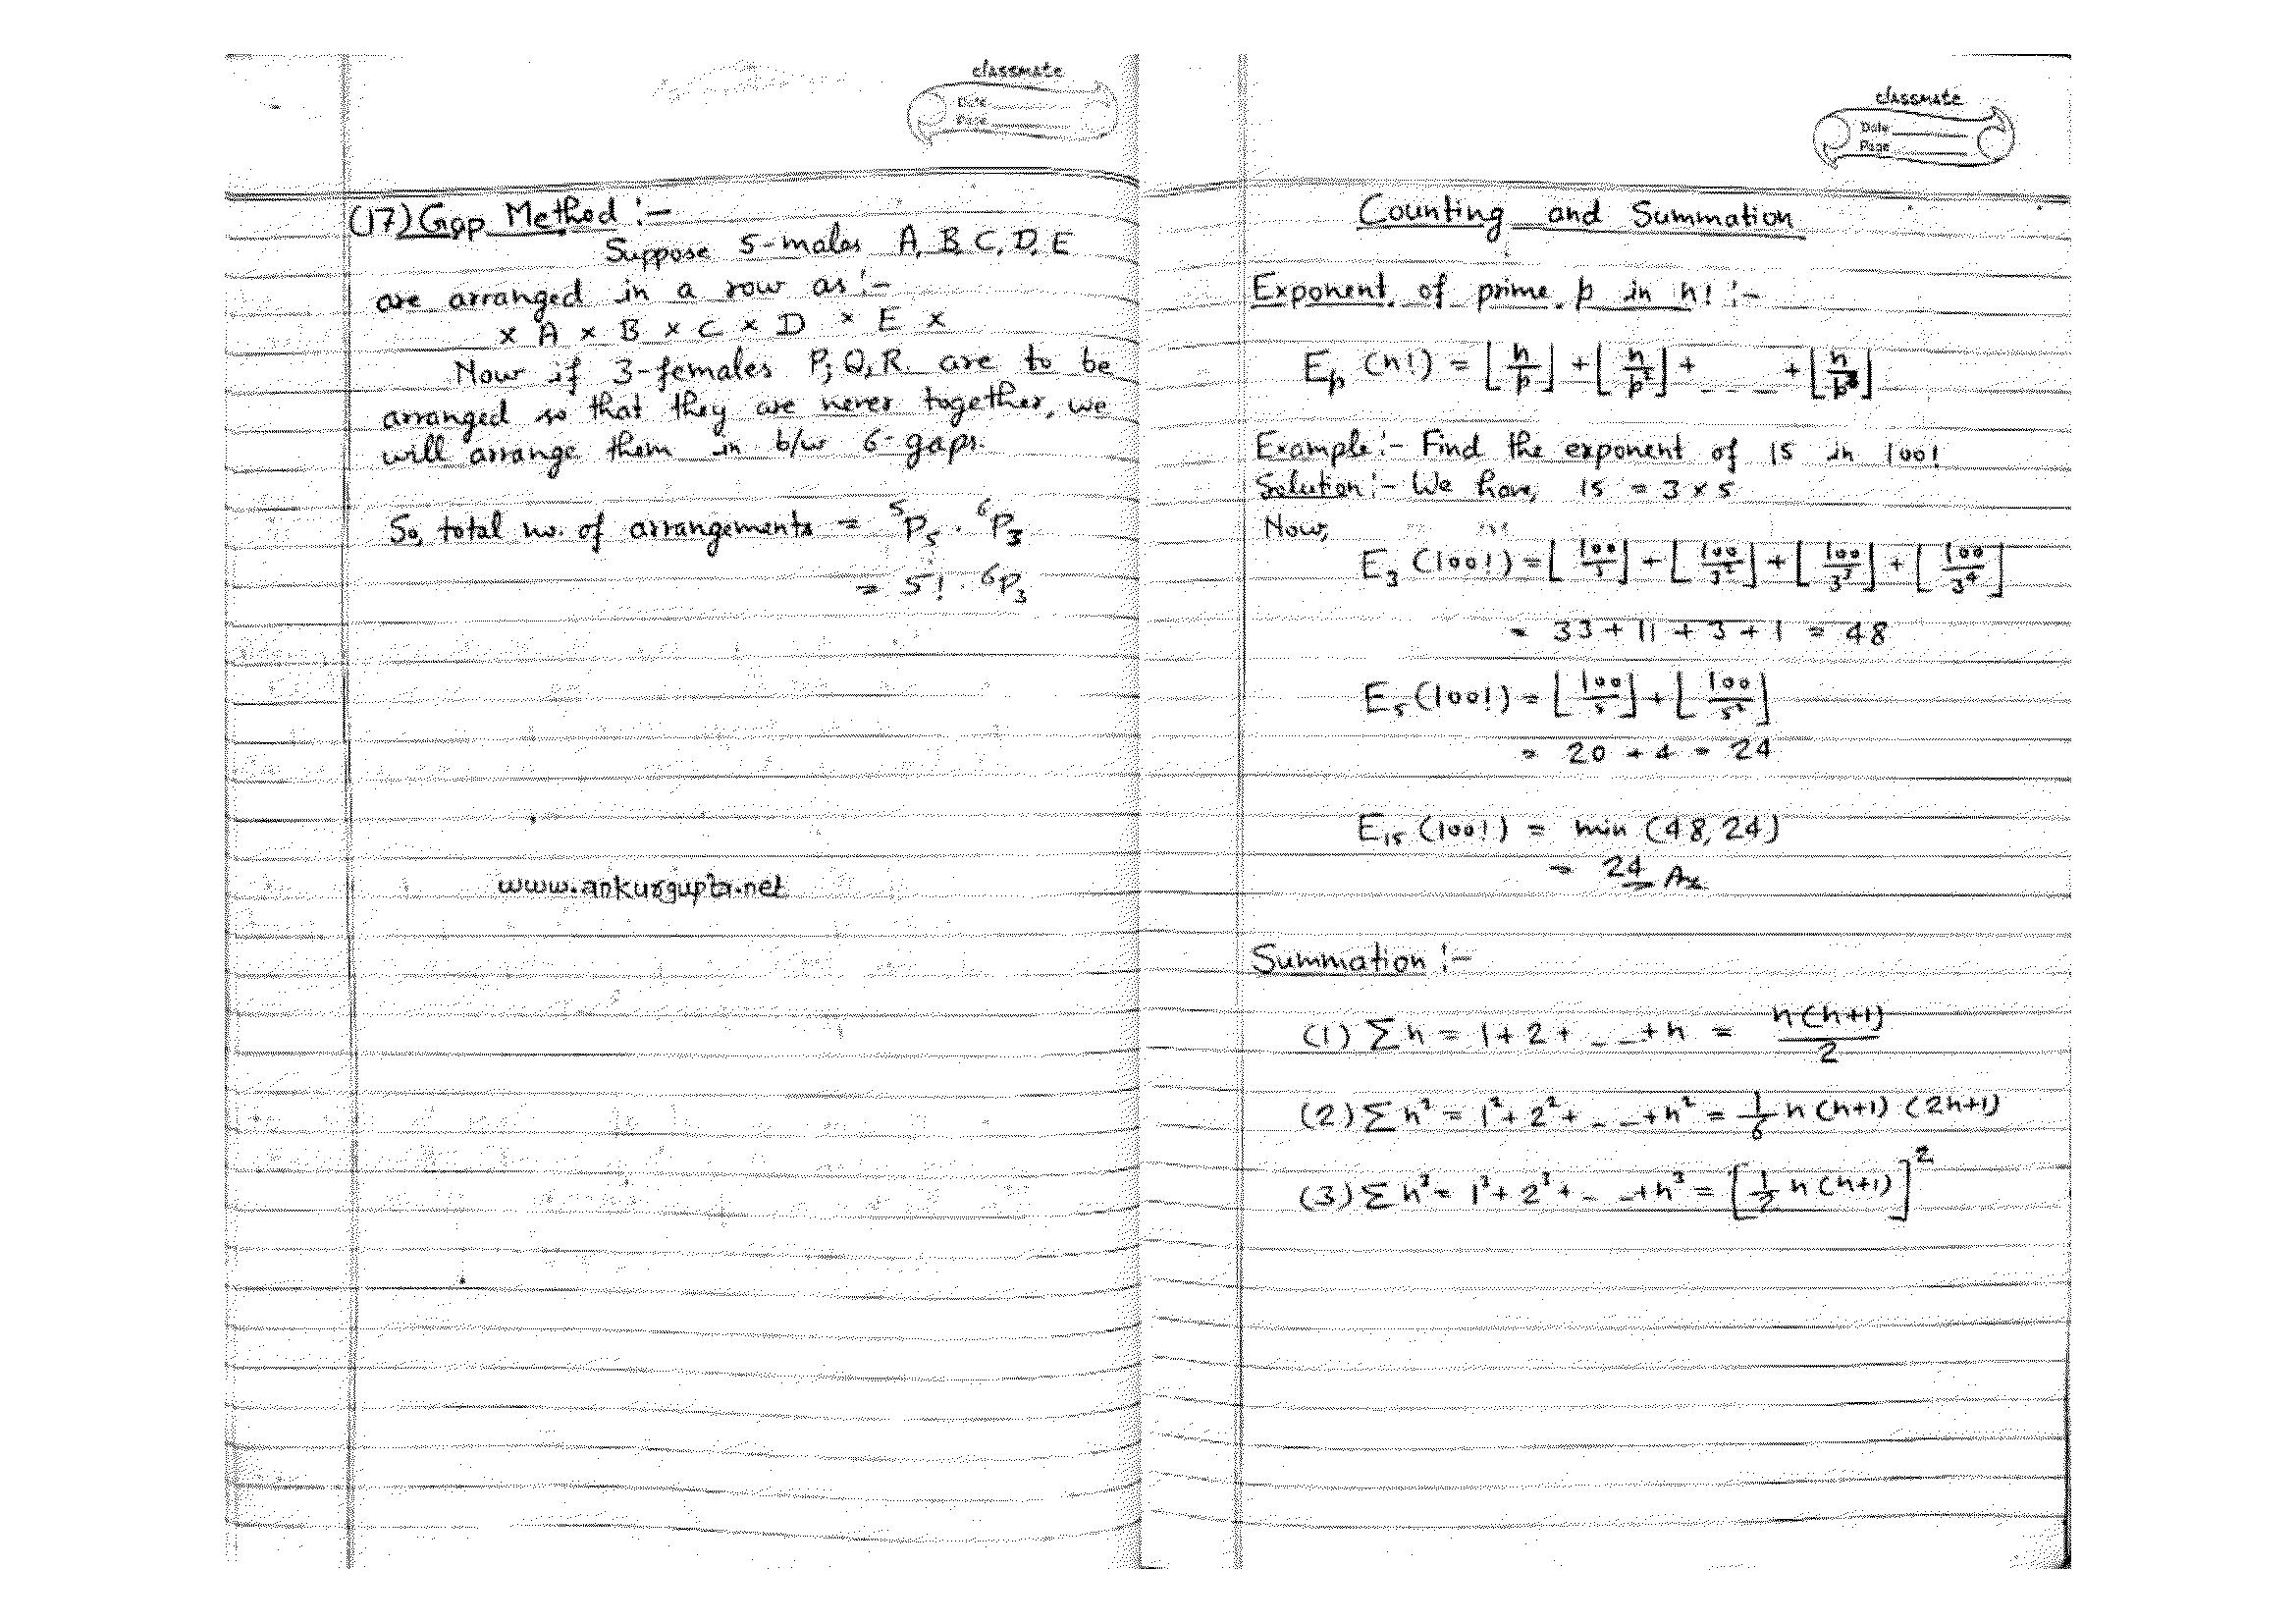 classmate
Date
Page
(17) Gap Method :-
Suppose 5-males A, B, C, D, E
are arranged in a row as :-
x A x B x C x D x E x
Now if 3-females P, Q, R are to be
arranged so that they are never together, we
will arrange them in b/w 6-gaps.
So, total no. of arrangements = ⁵P₅ . ⁶P₃
= 5! . ⁶P₃
www.ankurgupta.net
classmate
Date
Page
Counting and Summation
Exponent of prime p in n! :-
Eₚ (n!) = ⌊n/p⌋ + ⌊n/p²⌋ + _ _ _ + ⌊n/p³⌋
Example :- Find the exponent of 15 in 100!
Solution :- We have, 15 = 3 x 5
Now,
E₃ (100!) = ⌊100/3⌋ + ⌊100/3²⌋ + ⌊100/3³⌋ + ⌊100/3⁴⌋
= 33 + 11 + 3 + 1 = 48
E₅ (100!) = ⌊100/5⌋ + ⌊100/5²⌋
= 20 + 4 = 24
E₁₅ (100!) = min (48, 24)
= 24 Ans
Summation :-
(1) ∑ n = 1 + 2 + _ _ + n = n(n+1)/2
(2) ∑ n² = 1² + 2² + _ _ + n² = 1/6 n (n+1) (2n+1)
(3) ∑ n³ = 1³ + 2³ + _ _ + n³ = [1/2 n (n+1)]²